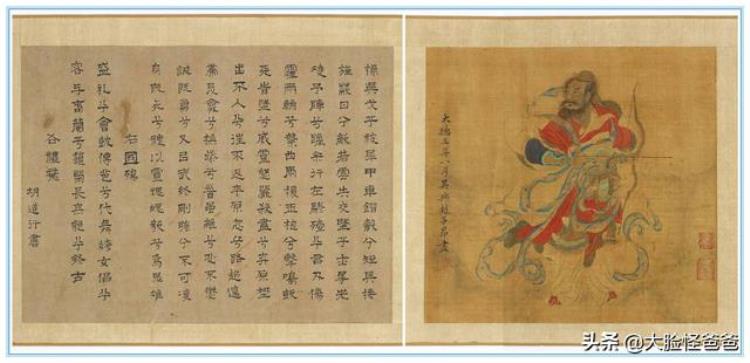 操吳戈兮被犀甲車錯轂兮短兵接
旌蔽日兮敵若雲矢交墜兮士爭先
凌予陣兮躐余行左驂殪兮右刃傷
霾兩輪兮縶四馬援玉枹兮擊鳴鼓
天時墜兮威靈怒嚴殺盡兮棄原野
出不入兮往不反平原忽兮路超遠
帶長劍兮挾秦弓首雖離兮心不懲
誠既勇兮又以武終剛強兮不可凌
身既死兮神以靈魂魄毅兮為鬼雄
右國殤
盛禮兮會鼓傳芭兮代舞姱女倡兮
容與春蘭兮秋菊長無絕兮終古
右禮魂
胡道行書
大德五年八月吳興趙子昂畫
头条@大脸怪爸爸